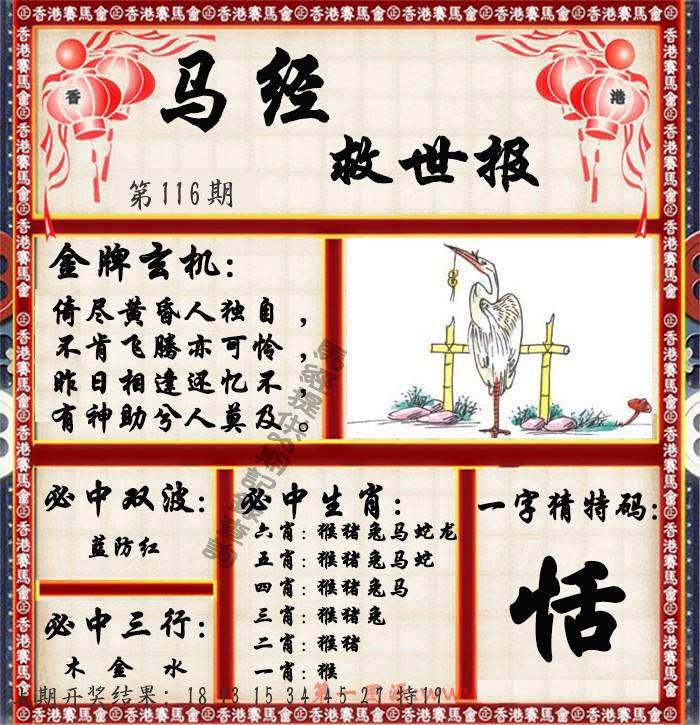 香港賽馬會㊣香港賽馬會㊣香港賽馬會㊣香港賽馬會㊣香港賽馬會
香
港
马经
救世报
第116期
金牌玄机：
倚尽黄昏人独自，
不肯飞腾亦可怜，
昨日相逢还忆不，
有神助兮人莫及。
必中双波：
蓝防红
必中三行：
木 金 水
必中生肖：
六肖：猴猪兔马蛇龙
五肖：猴猪兔马蛇
四肖：猴猪兔马
三肖：猴猪兔
二肖：猴猪
一肖：猴
一字猜特码：
恬
期开奖结果：18 13 15 34 45 27 特19
第一图源